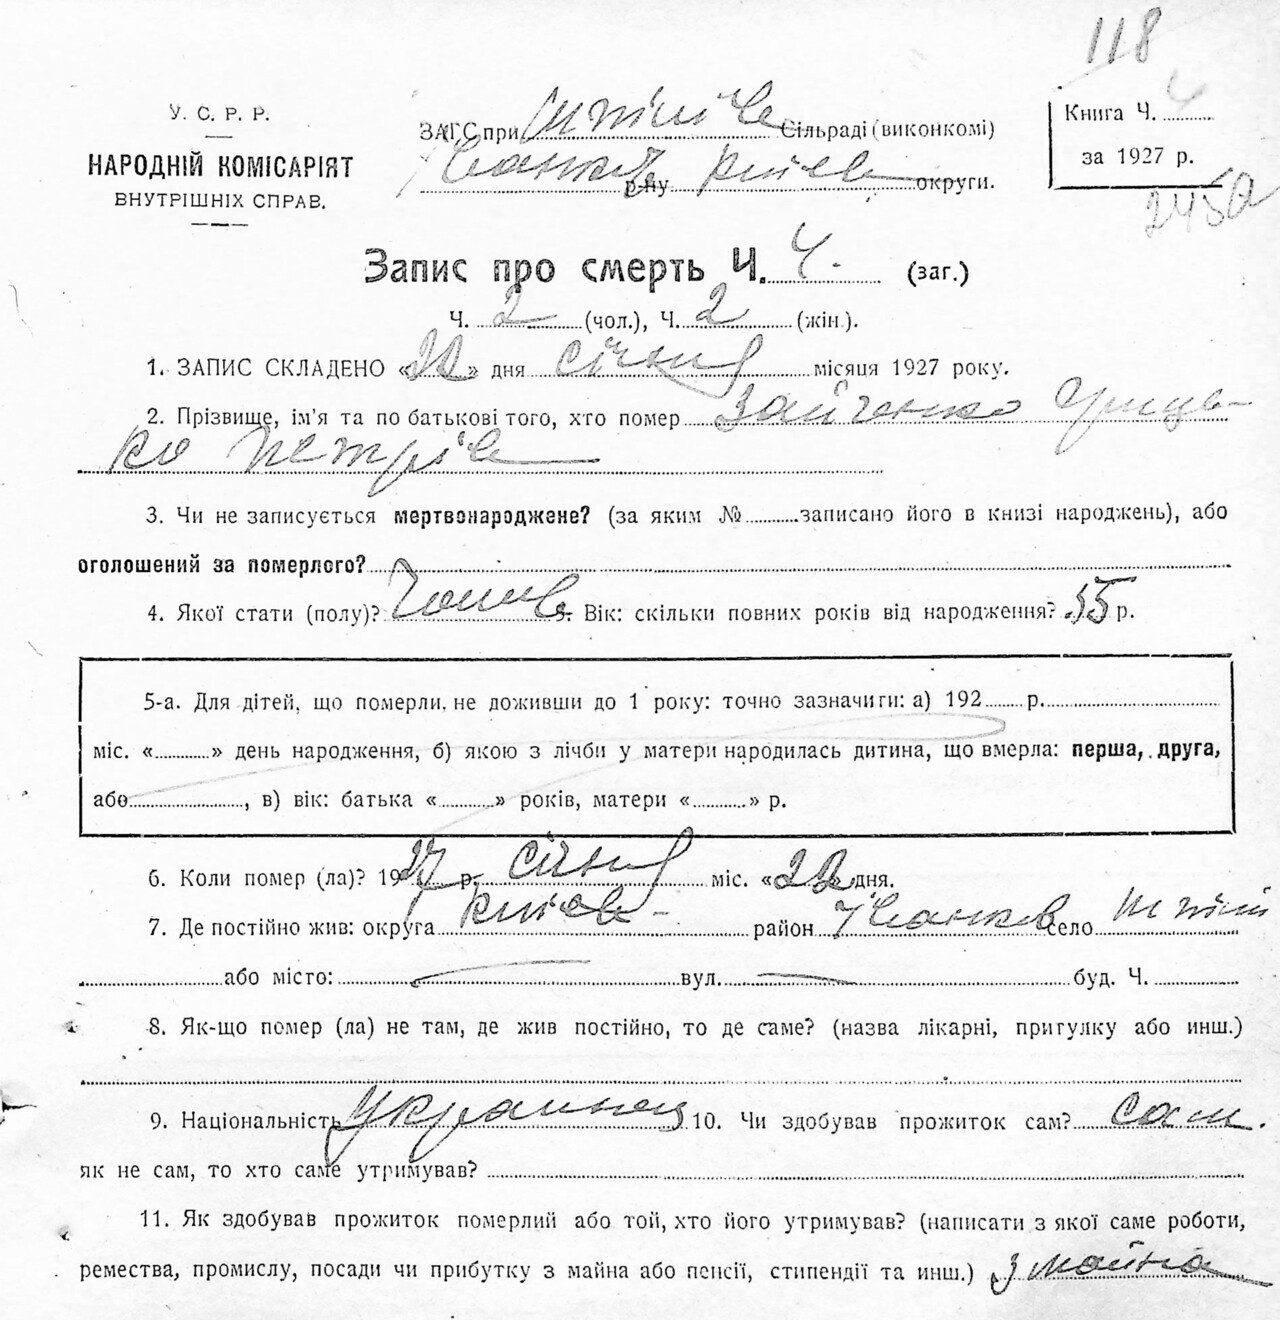 118
У. С. Р. Р.
НАРОДНІЙ КОМІСАРІЯТ
ВНУТРІШНІХ СПРАВ.
ЗАГС при Шпілів Сільраді (виконкомі)
Іванків р-ну Київ округи.
Книга Ч. 4
за 1927 р.
Запис про смерть Ч. 4. (заг.)
Ч. 2 (чол.), Ч. 2 (жін.).
1. ЗАПИС СКЛАДЕНО «22» дня січня місяця 1927 року.
2. Прізвище, ім'я та по батькові того, хто помер Зайченко Грицько
Петрів
3. Чи не записується мертвонароджене? (за яким № записано його в книзі народжень), або
оголошений за померлого?
4. Якої стати (полу)? Чолов. Вік: скільки повних років від народження? 55 р.
5-а. Для дітей, що померли, не доживши до 1 року: точно зазначити: а) 192 р.
міс. « » день народження, б) якою з лічби у матери народилась дитина, що вмерла: перша, друга,
або , в) вік: батька « » років, матери « » р.
6. Коли помер (ла)? 1927 р. січня міс. «22» дня.
7. Де постійно жив: округа Київ- район Іванков село Шпілі
або місто: — вул. — буд. Ч.
8. Як-що помер (ла) не там, де жив постійно, то де саме? (назва лікарні, пригулку або инш.)
9. Національність Украинец 10. Чи здобував прожиток сам? сам.
як не сам, то хто саме утримував?
11. Як здобував прожиток померлий або той, хто його утримував? (написати з якої саме роботи,
ремества, промислу, посади чи прибутку з майна або пенсії, стипендії та инш.) з майна